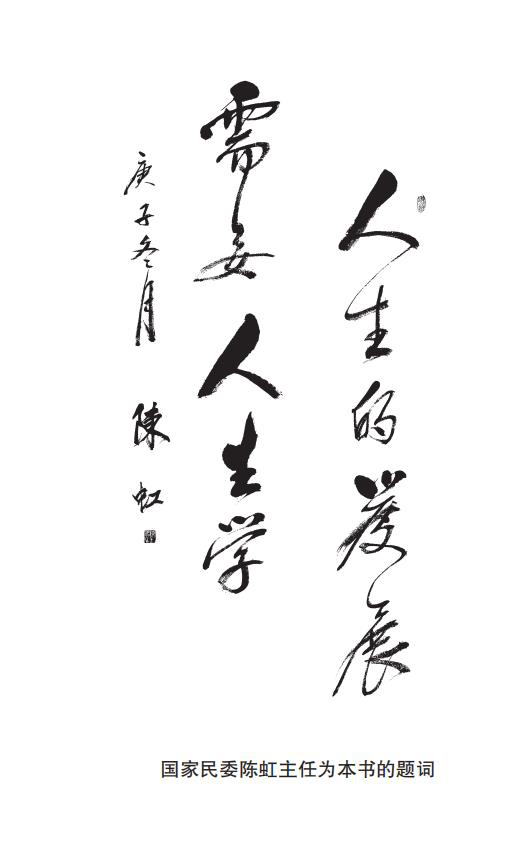 人生的发展
需要人生学
庚子冬月 陳虹
国家民委陈虹主任为本书的题词